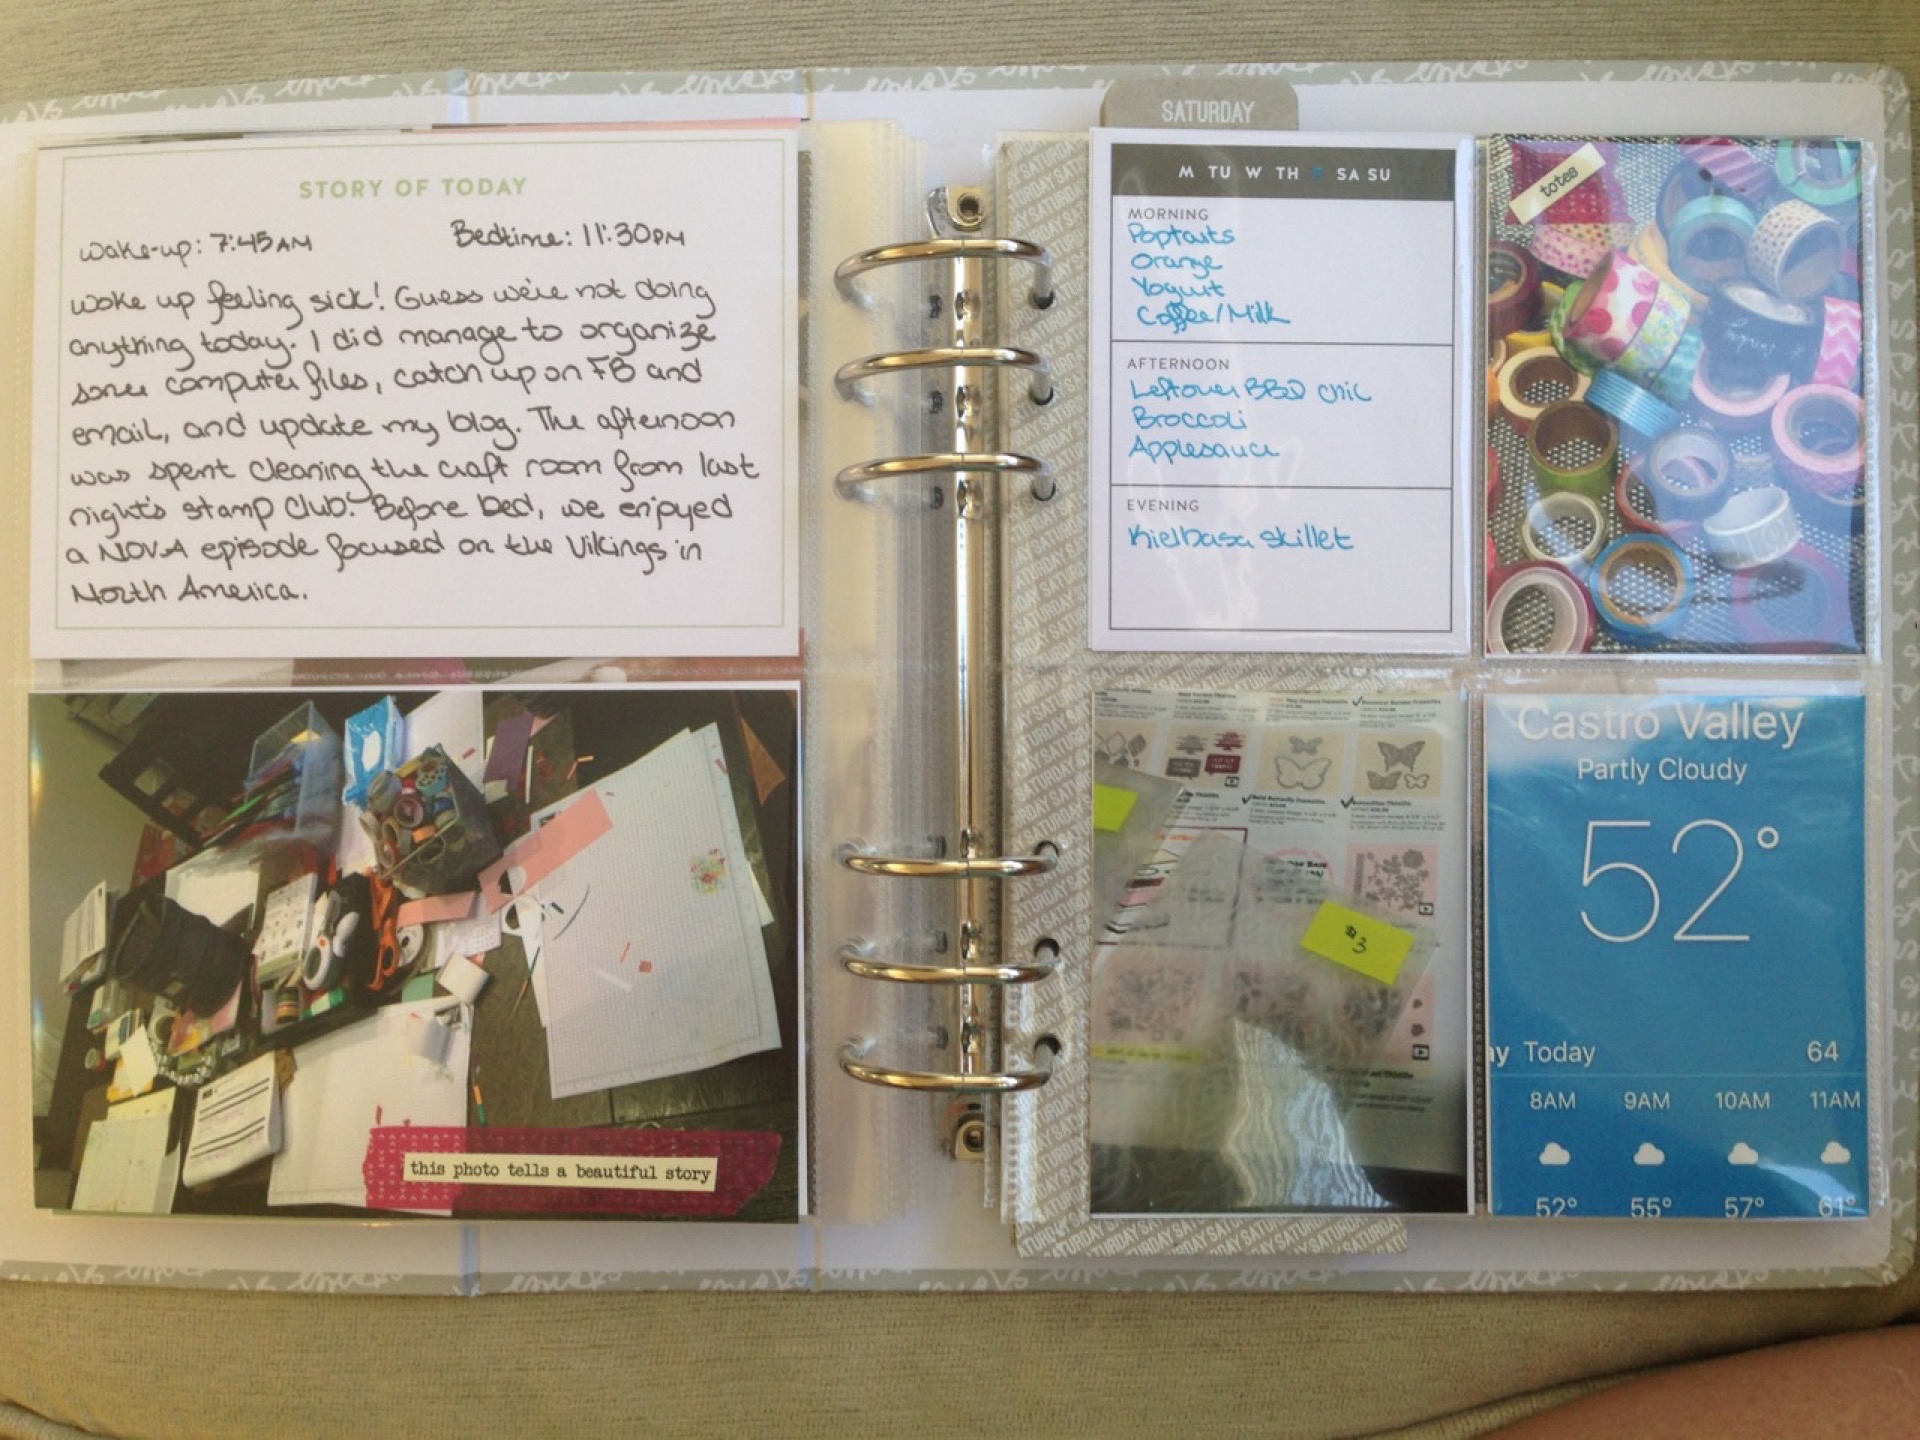 STORY OF TODAY
Wake-up: 7:45AM
Bedtime: 11:30PM
Woke up feeling sick! Guess we're not doing
anything today. I did manage to organize
some computer files, catch up on FB and
email, and update my blog. The afternoon
was spent cleaning the craft room from last
night's stamp club. Before bed, we enjoyed
a NOVA episode focused on the Vikings in
North America.
this photo tells a beautiful story
SATURDAY
M TU W TH F SA SU
MORNING
Poptarts
Orange
Yogurt
Coffee/Milk
AFTERNOON
Leftover BBQ chic
Broccoli
Applesauce
EVENING
Kielbasa skillet
totes
$3
Castro Valley
Partly Cloudy
52°
ay Today 64
8AM 9AM 10AM 11AM
52° 55° 57° 61°